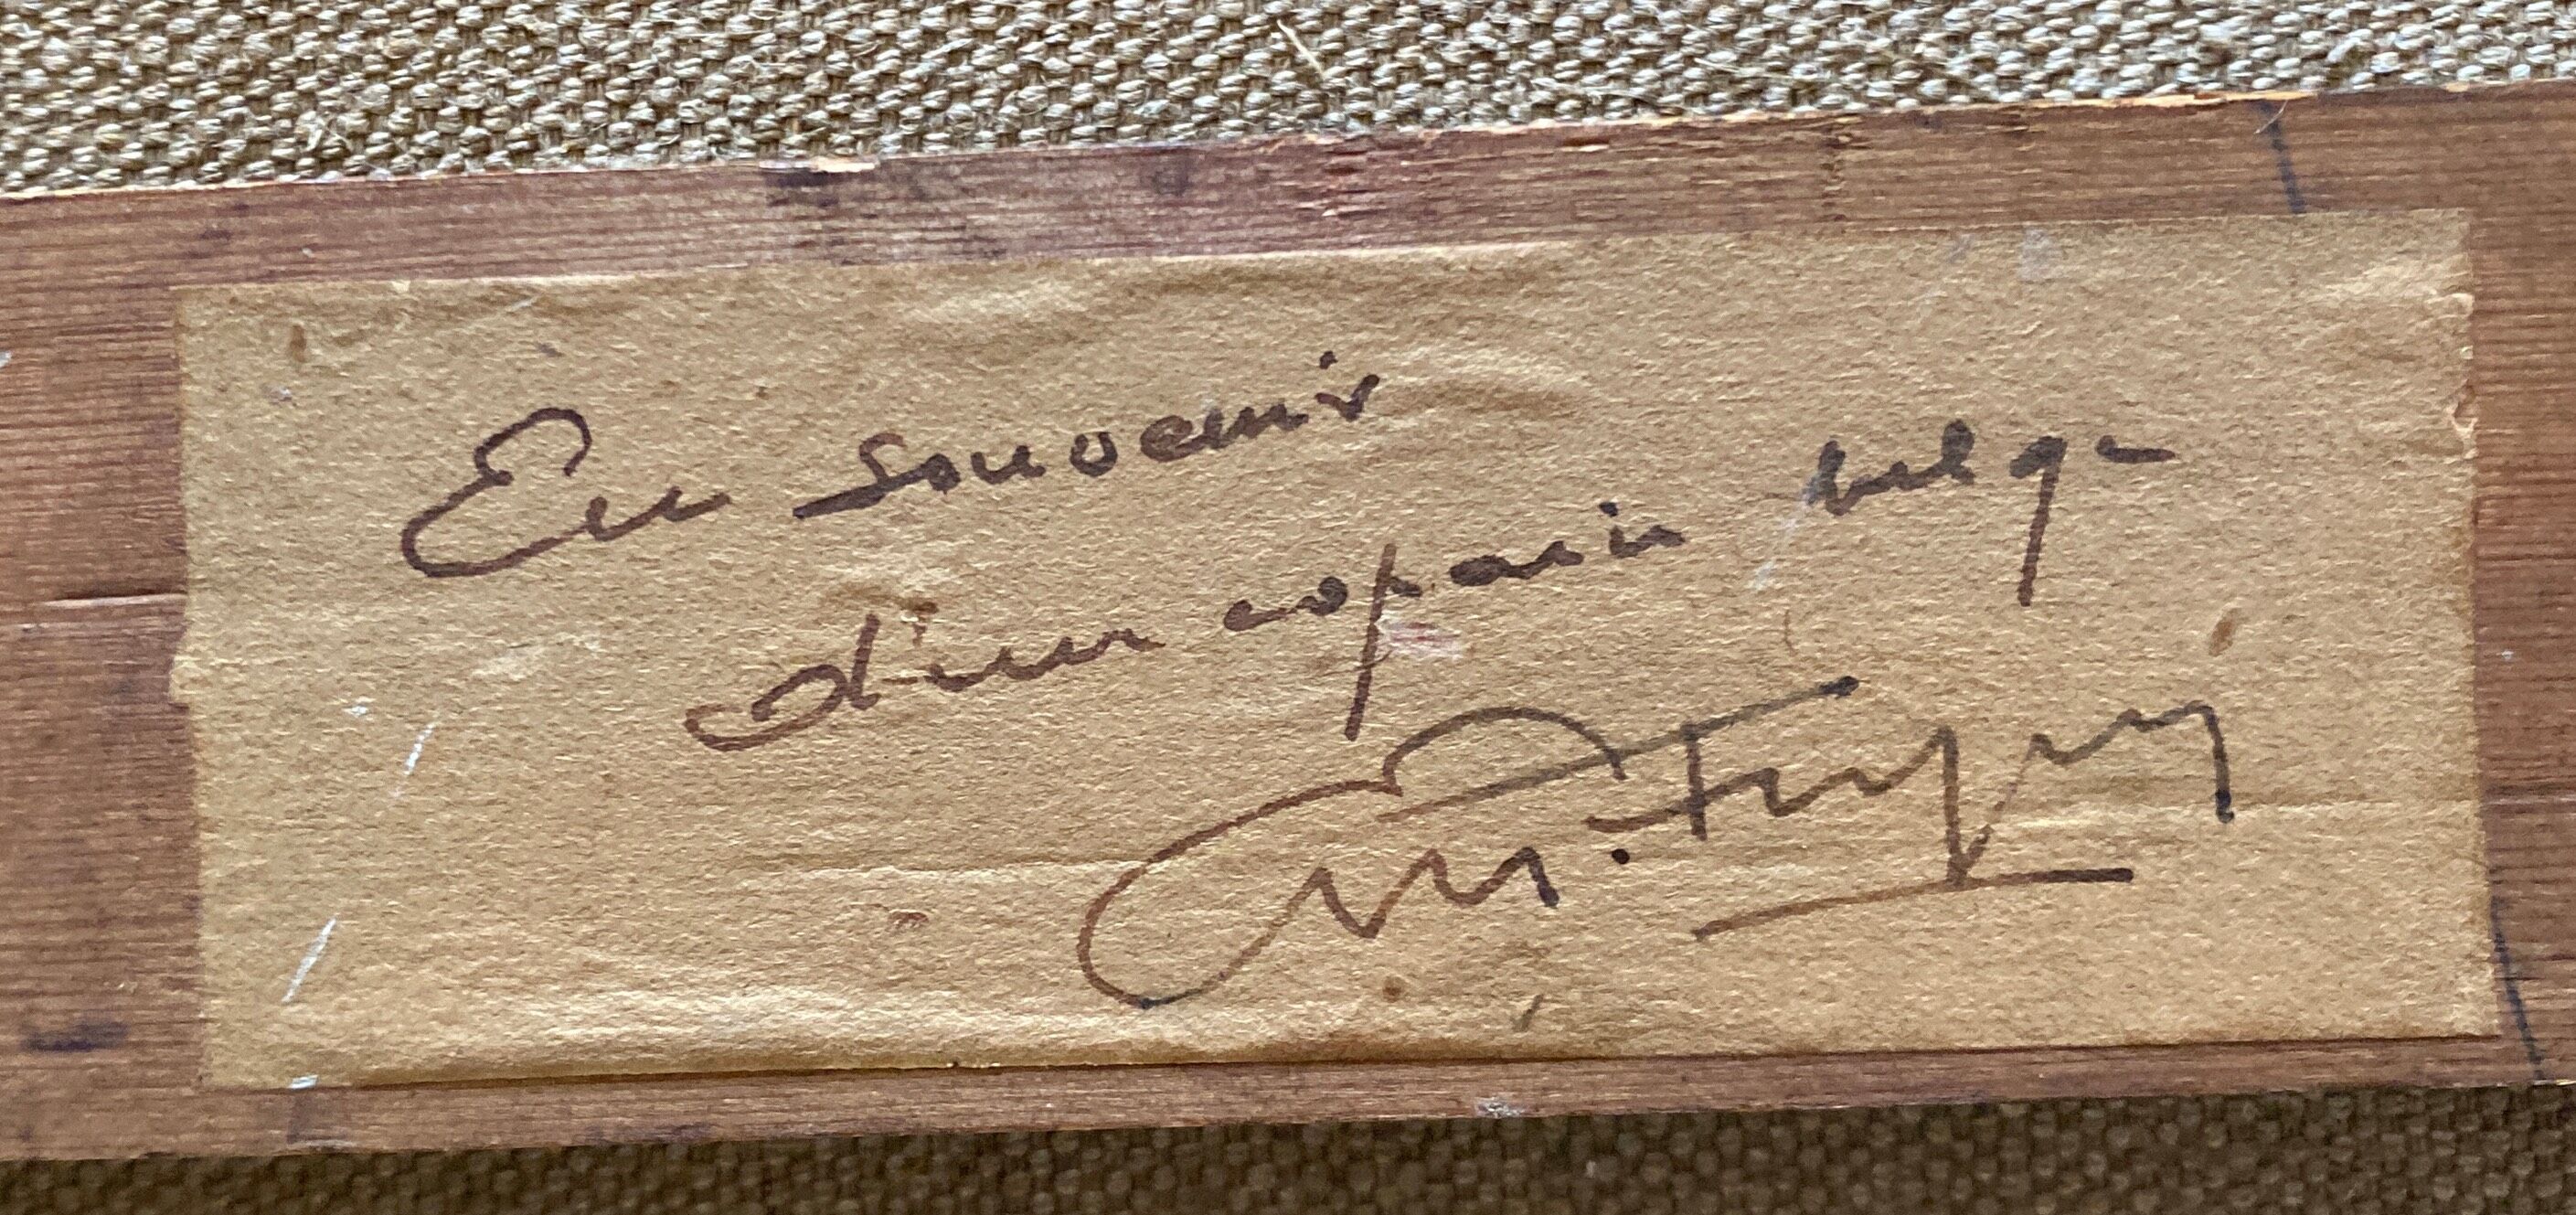 En souvenir
d'un copain belge